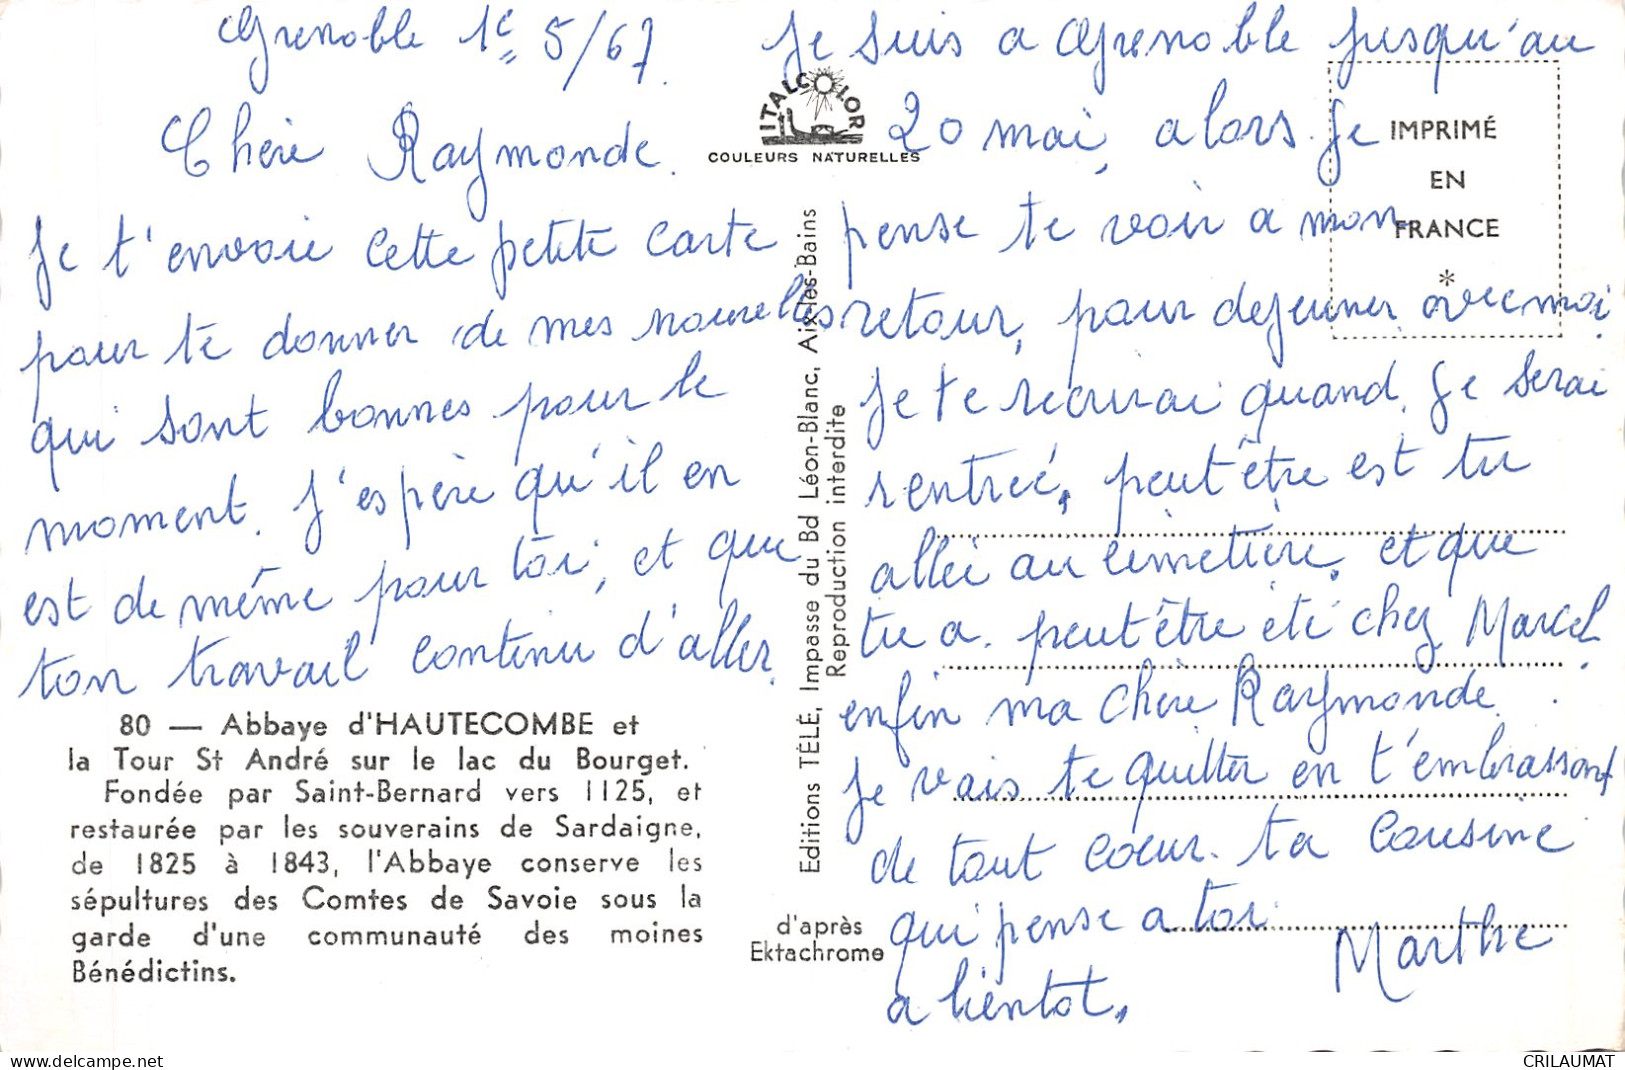 Grenoble 1e 5/67.
Chère Raymonde.
Je t'envoie cette petite carte
pour te donner de mes nouvelles
qui sont bonnes pour le
moment. J'espère qu'il en
est de même pour toi, et que
ton travail continu d'aller.
80 — Abbaye d'HAUTECOMBE et
la Tour St André sur le lac du Bourget.
Fondée par Saint-Bernard vers 1125, et
restaurée par les souverains de Sardaigne,
de 1825 à 1843, l'Abbaye conserve les
sépultures des Comtes de Savoie sous la
garde d'une communauté des moines
Bénédictins.
ITALCOLOR
COULEURS NATURELLES
Editions TÉLÉ, Impasse du Bd Léon-Blanc, Aix-les-Bains
Reproduction interdite
d'après
Ektachrome
IMPRIMÉ
EN
FRANCE
*
Je suis a Grenoble jusqu'au
20 mai, alors je
pense te voir a mon
retour, pour dejeuner avec moi
Je te recrirai quand. Je serai
rentreé, peut'être est tu
alleé au cimetière, et que
tu a. peut'être eté chez Marcel.
enfin ma chère Raymonde.
Je vais te quitter en t'embrassant
de tout coeur. ta Cousine
qui pense a toi.
Marthe
a bientot,
www.delcampe.net
CRILAUMAT